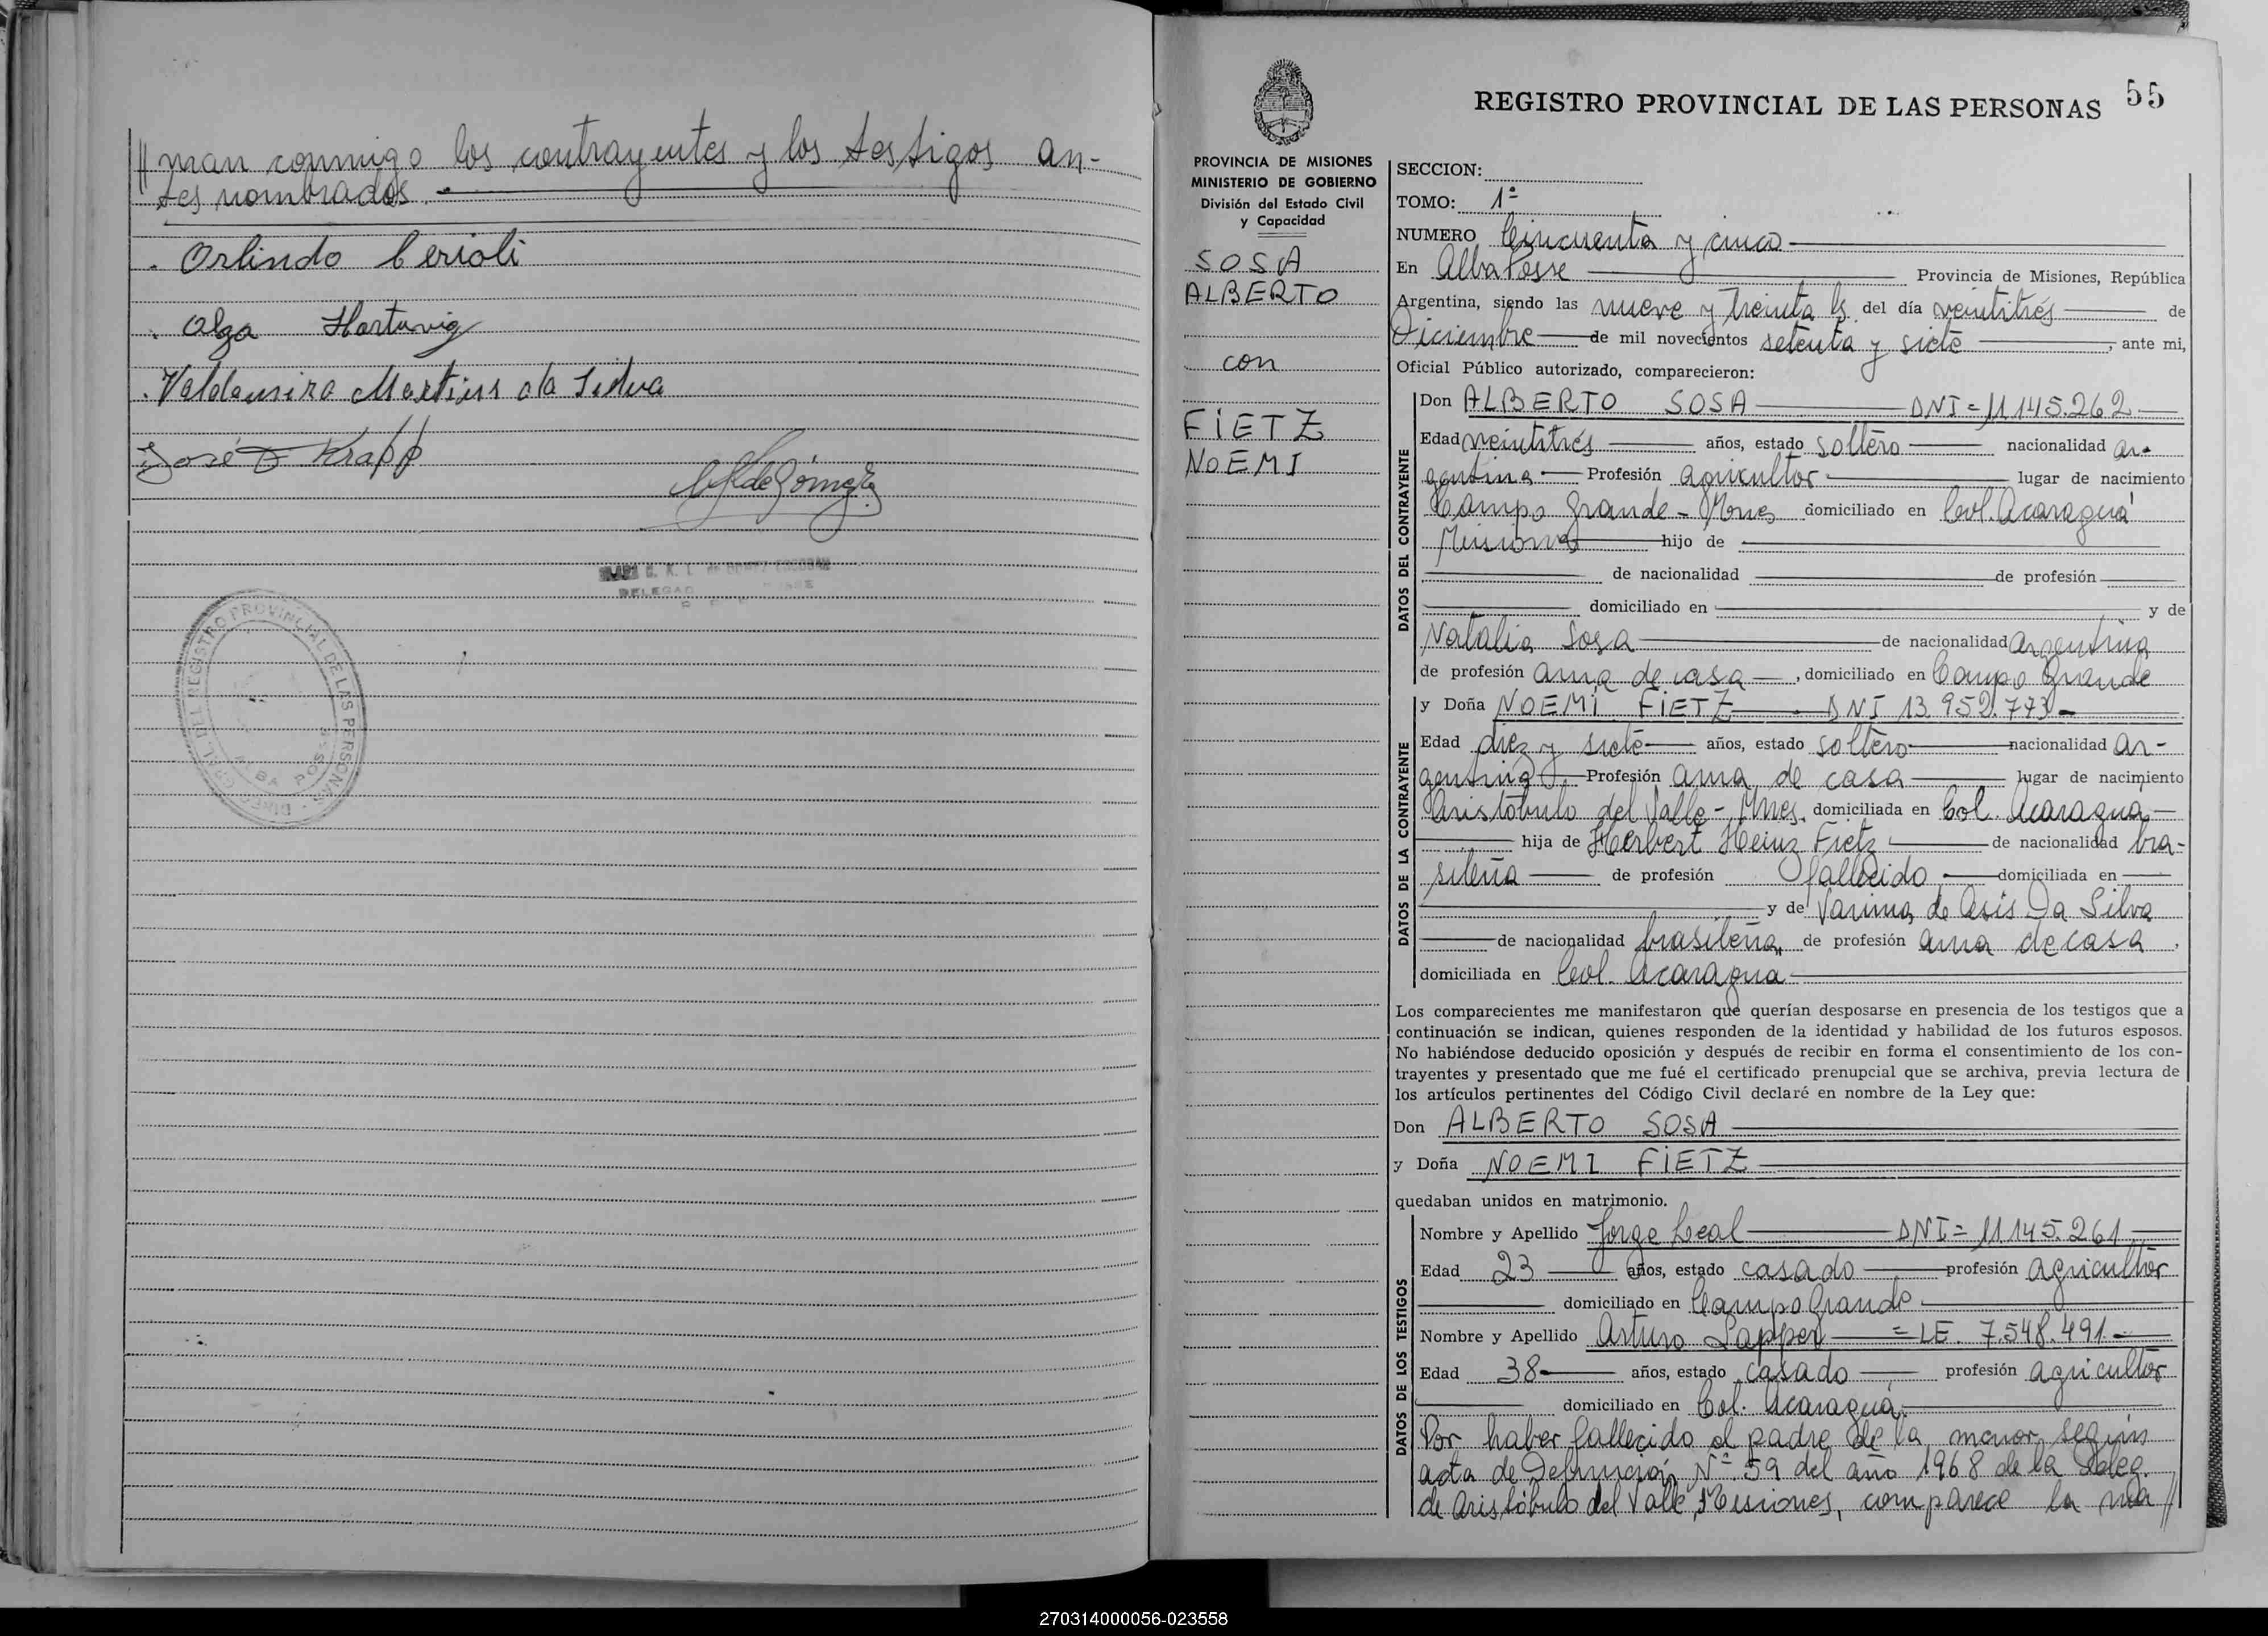 // man conmigo los contrayentes y los testigos an-
tes nombrados.
. Orlindo Cerioli
. Olga Hartwig
. Valdemira Martins da Silva
José D Krapp
DIRECC. GRAL. DEL REGISTRO PROVINCIAL DE LAS PERSONAS
ALBA POSSE
REGISTRO PROVINCIAL DE LAS PERSONAS 55
PROVINCIA DE MISIONES
MINISTERIO DE GOBIERNO
División del Estado Civil
y Capacidad
SOSA
ALBERTO
con
FIETZ
NOEMI
SECCION:
TOMO: 1º
NUMERO Cincuenta y cinco
En Alba Posse Provincia de Misiones, República
Argentina, siendo las nueve y treinta hs. del día veintitrés de
Diciembre de mil novecientos setenta y siete, ante mi,
Oficial Público autorizado, comparecieron:
DATOS DEL CONTRAYENTE
Don ALBERTO SOSA DNI = 11.145.262
Edad veintitrés años, estado soltero nacionalidad ar-
gentina Profesión agricultor lugar de nacimiento
Campo Grande - Mnes domiciliado en Col. Acaraguá
Misiones hijo de
de nacionalidad de profesión
domiciliado en y de
Natalia Sosa de nacionalidad argentina
de profesión ama de casa, domiciliado en Campo Grande
DATOS DE LA CONTRAYENTE
y Doña NOEMI FIETZ DNI 13.952.773
Edad diez y siete años, estado soltero nacionalidad ar-
gentina Profesión ama de casa lugar de nacimiento
Aristóbulo del Valle - Mnes. domiciliada en Col. Acaragua
hija de Herbert Heinz Fietz de nacionalidad bra-
sileña de profesión fallecido domiciliada en
y de Vanima de Asis Da Silva
de nacionalidad brasileña, de profesión ama de casa,
domiciliada en Col. Acaragua
Los comparecientes me manifestaron que querían desposarse en presencia de los testigos que a
continuación se indican, quienes responden de la identidad y habilidad de los futuros esposos.
No habiéndose deducido oposición y después de recibir en forma el consentimiento de los con-
trayentes y presentado que me fué el certificado prenupcial que se archiva, previa lectura de
los artículos pertinentes del Código Civil declaré en nombre de la Ley que:
Don ALBERTO SOSA
y Doña NOEMI FIETZ
quedaban unidos en matrimonio.
DATOS DE LOS TESTIGOS
Nombre y Apellido Jorge Leal DNI = 11.145.261
Edad 23 años, estado casado profesión agricultor
domiciliado en Campo Grande
Nombre y Apellido Arturo Papper = LE. 7.548.491
Edad 38 años, estado casado profesión agricultor
domiciliado en Col. Acaraguá
Por haber fallecido el padre de la menor según
acta de Defunción Nº 59 del año 1968 de la Deleg.
de Aristóbulo del Valle, Misiones, comparece la ma //
270314000056-023558